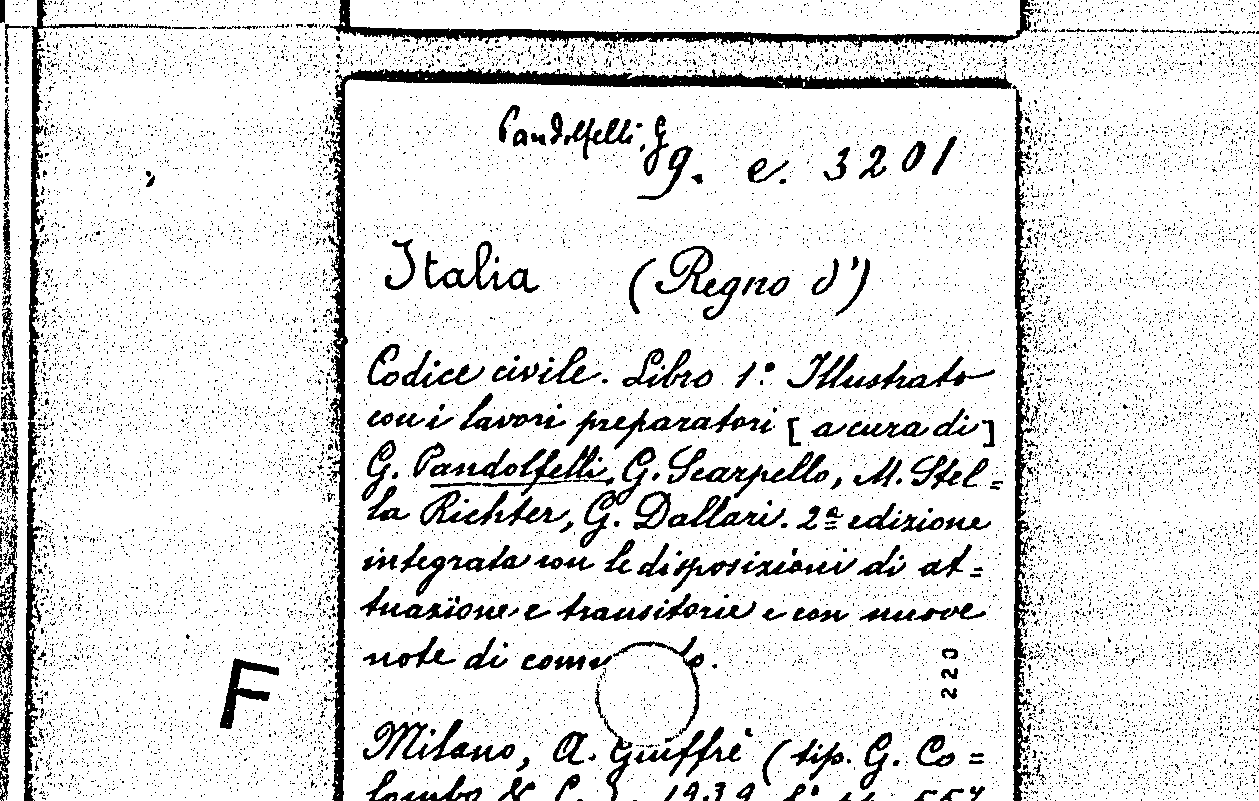 Pandolfelli, G
g. e. 3201
Italia (Regno d')
Codice civile. Libro 1º. Illustrato
con i lavori preparatori [a cura di]
G. Pandolfelli, G. Scarpello, M. Stel=
la Richter, G. Dallari. 2ª edizione
integrata con le disposizioni di at=
tuazione e transitorie e con nuove
note di
220
F
Milano, A. Giuffrè (tip. G. Co=
lombo & C.), 1939, 8º